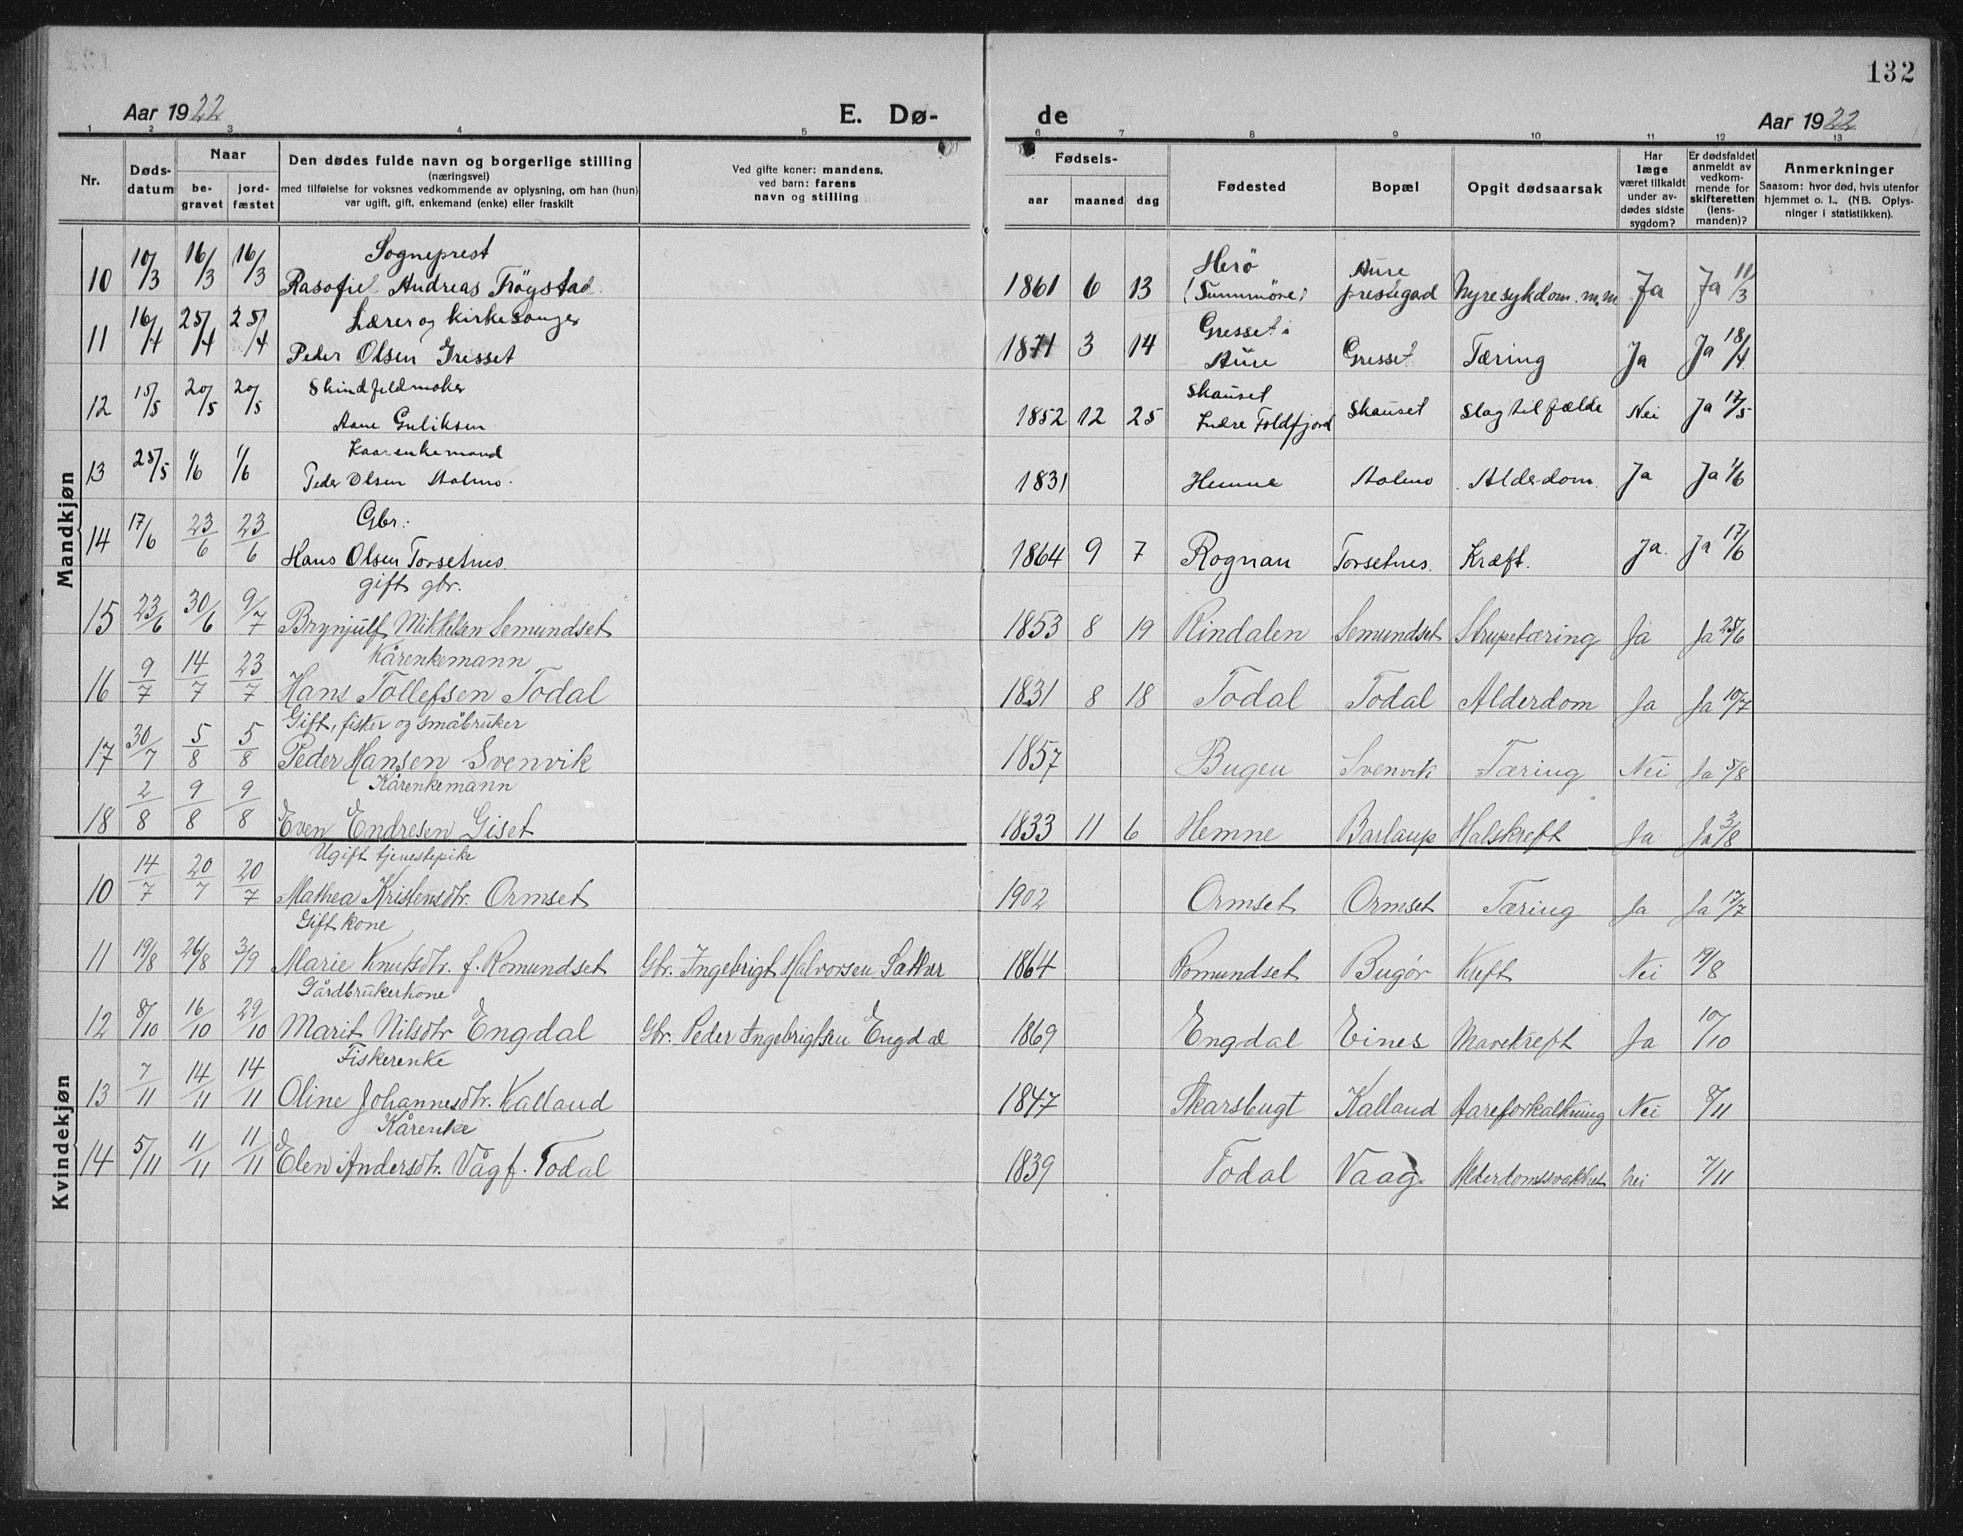 132
Aar 1922 E. Dø- de Aar 1922
1 2 3 4 5 6 7 8 9 10 11 12 13
Nr. Døds-datum Naar be-gravet jord-fæstet Den dødes fulde navn og borgerlige stilling (næringsvei) med tilføielse for voksnes vedkommende av oplysning, om han (hun) var ugift, gift, enkemand (enke) eller fraskilt Ved gifte koner: mandens, ved barn: farens navn og stilling Fødsels- aar maaned dag Fødested Bopæl Opgit dødsaarsak Har læge været tilkaldt under av-dødes sidste sygdom? Er dødsfaldet anmeldt av vedkom-mende for skifteretten (lens-manden)? Anmerkninger Saasom: hvor død, hvis utenfor hjemmet o. l., (NB. Oplys-ninger i statistikken).
Mandkjøn
Sogneprest Herö Aure
10 10/3 16/3 16/3 Rasofiel Andreas Tröystad 1861 6 13 (Summöre) prestegad Nyresykdom m.m. Ja Ja 11/3
Lærer og kirkesanger Gresset i
11 16/4 25/4 25/4 Peder Olsen Gresset 1871 3 14 Aure Gresset Tæring Ja Ja 18/4
Skindfeldmaker Skauset
12 15/5 20/5 20/5 Aane Guliksen 1852 12 25 Indre Foldfjord Skauset Slagtilfælde Nei Ja 17/5
Kaarenkemand
13 25/5 1/6 1/6 Peder Olsen Aalmo. 1831 Hemne Aalmo Alderdom. Ja Ja 1/6
Gbr.
14 17/6 23/6 23/6 Hans Olsen Torsetnes. 1864 9 7 Rognan Torsetnes. Kræft. Ja. Ja 17/6
gift gbr.
15 23/6 30/6 9/7 Brynjulf Mikkelsen Semundset 1853 8 19 Rindalen Semundset Strupetæring Ja Ja 25/6
Kårenkemann
16 9/7 14/7 23/7 Hans Tollefsen Todal 1831 8 18 Todal Todal Alderdom Ja Ja 10/7
Gift, fisker og småbruker
17 30/7 5/8 5/8 Peder Hansen Svenvik 1857 Bugen Svenvik Tæring Nei Ja 5/8
Kårenkemann
18 2/8 9/8 9/8 Even Endresen Giset 1833 11 6 Hemne Barlaup Halskreft Ja Ja 3/8
Kvindekjøn
Ugift tjenestepike
10 14/7 20/7 20/7 Mathea Kristensdtr. Ormset 1902 Ormset Ormset Tæring Ja Ja 17/7
Gift kone
11 19/8 26/8 3/9 Marie Knutsdtr. f. Romundset Gbr. Ingebrigt Halvorsen Sætter 1864 Romundset Bugör Kreft Nei 19/8
Gårdbrukerkone
12 8/10 16/10 29/10 Marit Nilsdtr Engdal Gbr. Peder Ingebrigtsen Engdal 1869 Engdal Eines Mavekreft Ja 10/10
Fiskerenke
13 7/11 14/11 14/11 Oline Johannesdtr. Kalland 1847 Skarsbugt Kalland Aareforkalkning Nei 8/11
Kårenke
14 5/11 11/11 11/11 Elen Andersdtr. Våg f. Todal 1839 Todal Vaag Alderdomssvakhet nei 7/11